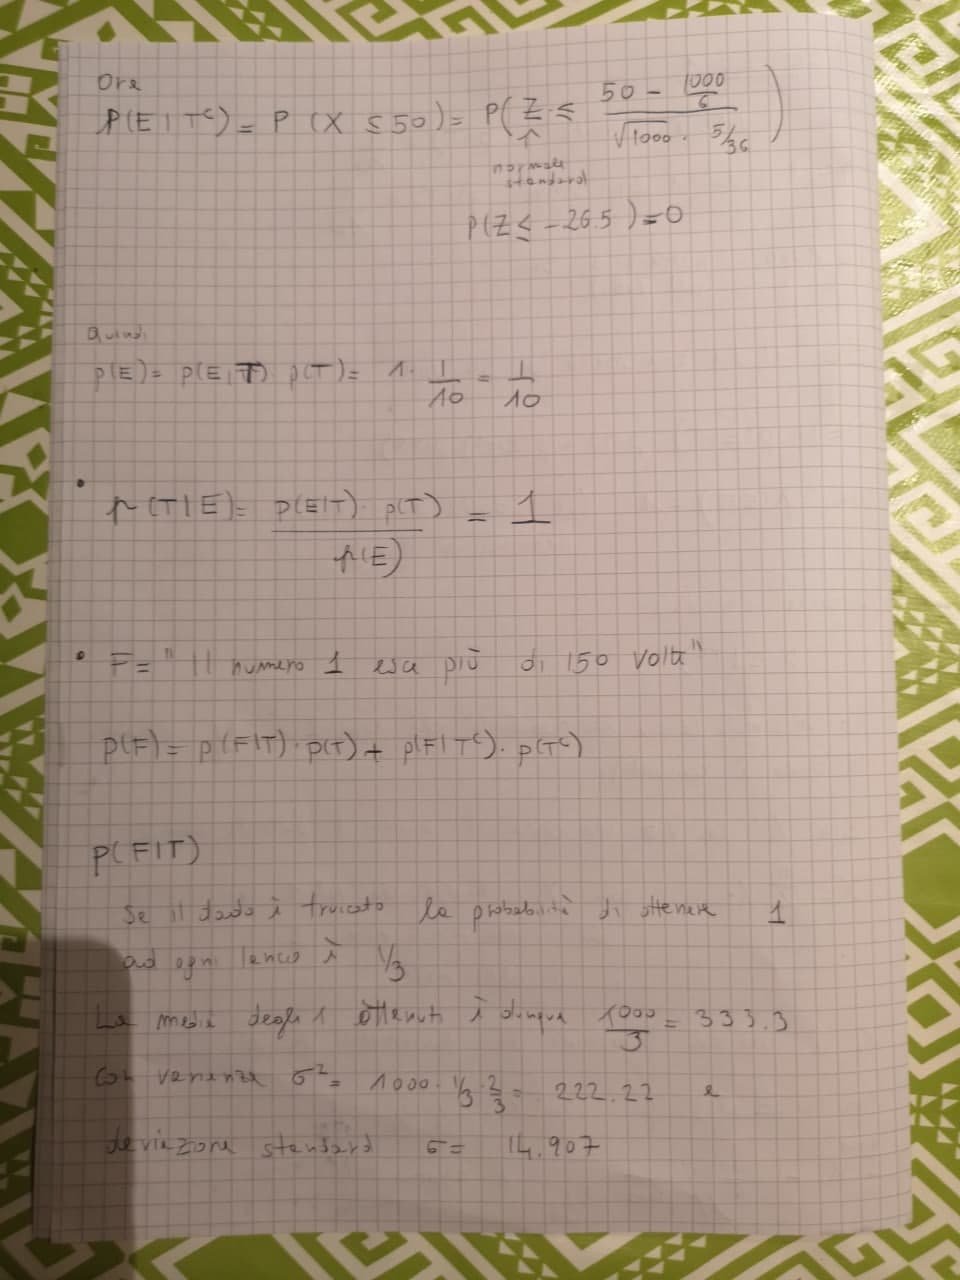 Ora
P(E|Tᶜ) = P (X ≤ 50) = P( Z ≤ (50 - 1000/6) / (√1000 · 5/36) )
↑
normale
standard
P(Z ≤ -26.5) = 0
Quindi
p(E) = p(E|T) p(T) = 1 · 1/10 = 1/10
• p(T|E) = p(E|T) · p(T) / p(E) = 1
• F = " Il numero 1 esce più di 150 volte"
p(F) = p(F|T) · p(T) + p(F|Tᶜ) · p(Tᶜ)
p(F|T)
Se il dado è truccato la probabilità di ottenere 1
ad ogni lancio è 1/3
La media degli 1 ottenuti è dunque 1000/3 = 333.3
Con varianza σ² = 1000 · 1/3 · 2/3 = 222.22 e
deviazione standard σ = 14.907